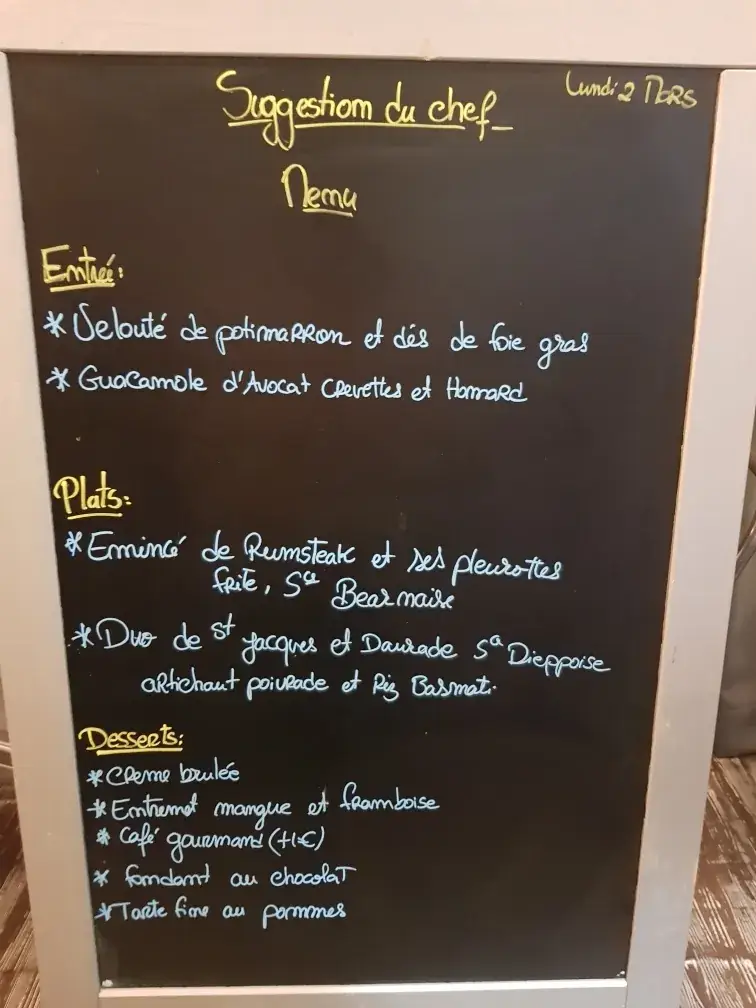 Suggestion du chef
Lundi 2 Mars
Menu
Entrée:
* Velouté de potimarron et dés de foie gras
* Guacamole d'Avocat crevettes et Homard
Plats:
* Emincé de Rumsteak et ses pleurottes
frite, Sce Bearnaise
* Duo de St Jacques et Daurade Sce Dieppoise
artichaut poivrade et Riz Basmati.
Desserts:
* Creme brulée
* Entremet mangue et framboise
* Café gourmand (+1€)
* fondant au chocolat
* Tarte fine au pommes